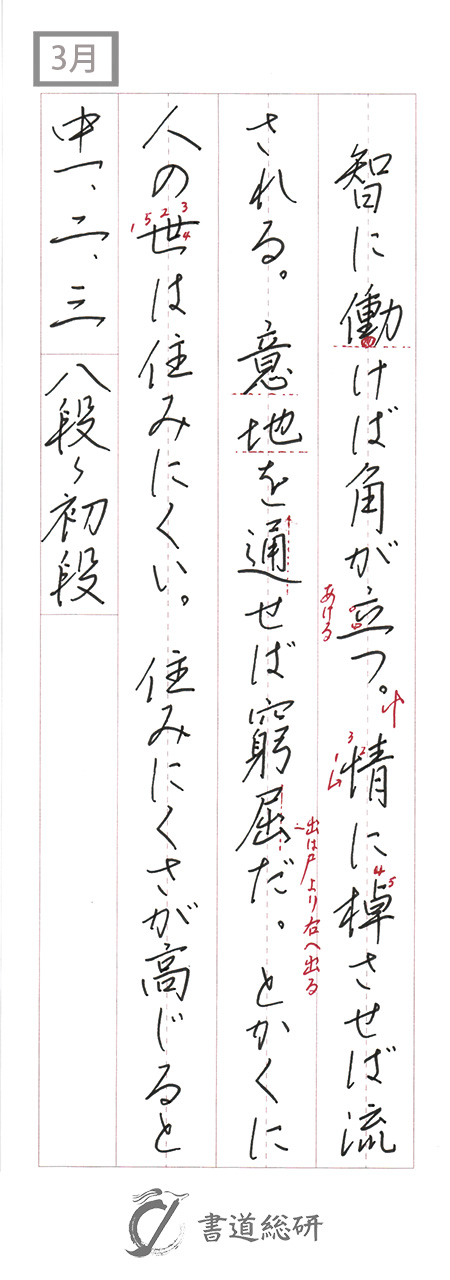 3月
智に働けば角が立つ。情に棹させば流
される。意地を通せば窮屈だ。とかくに
人の世は住みにくい。住みにくさが高じると
中一、二、三 八段〜初段
あける
出は尸より右へ出る
1 5 2 3 4
1 3 2
4 5
書道総研